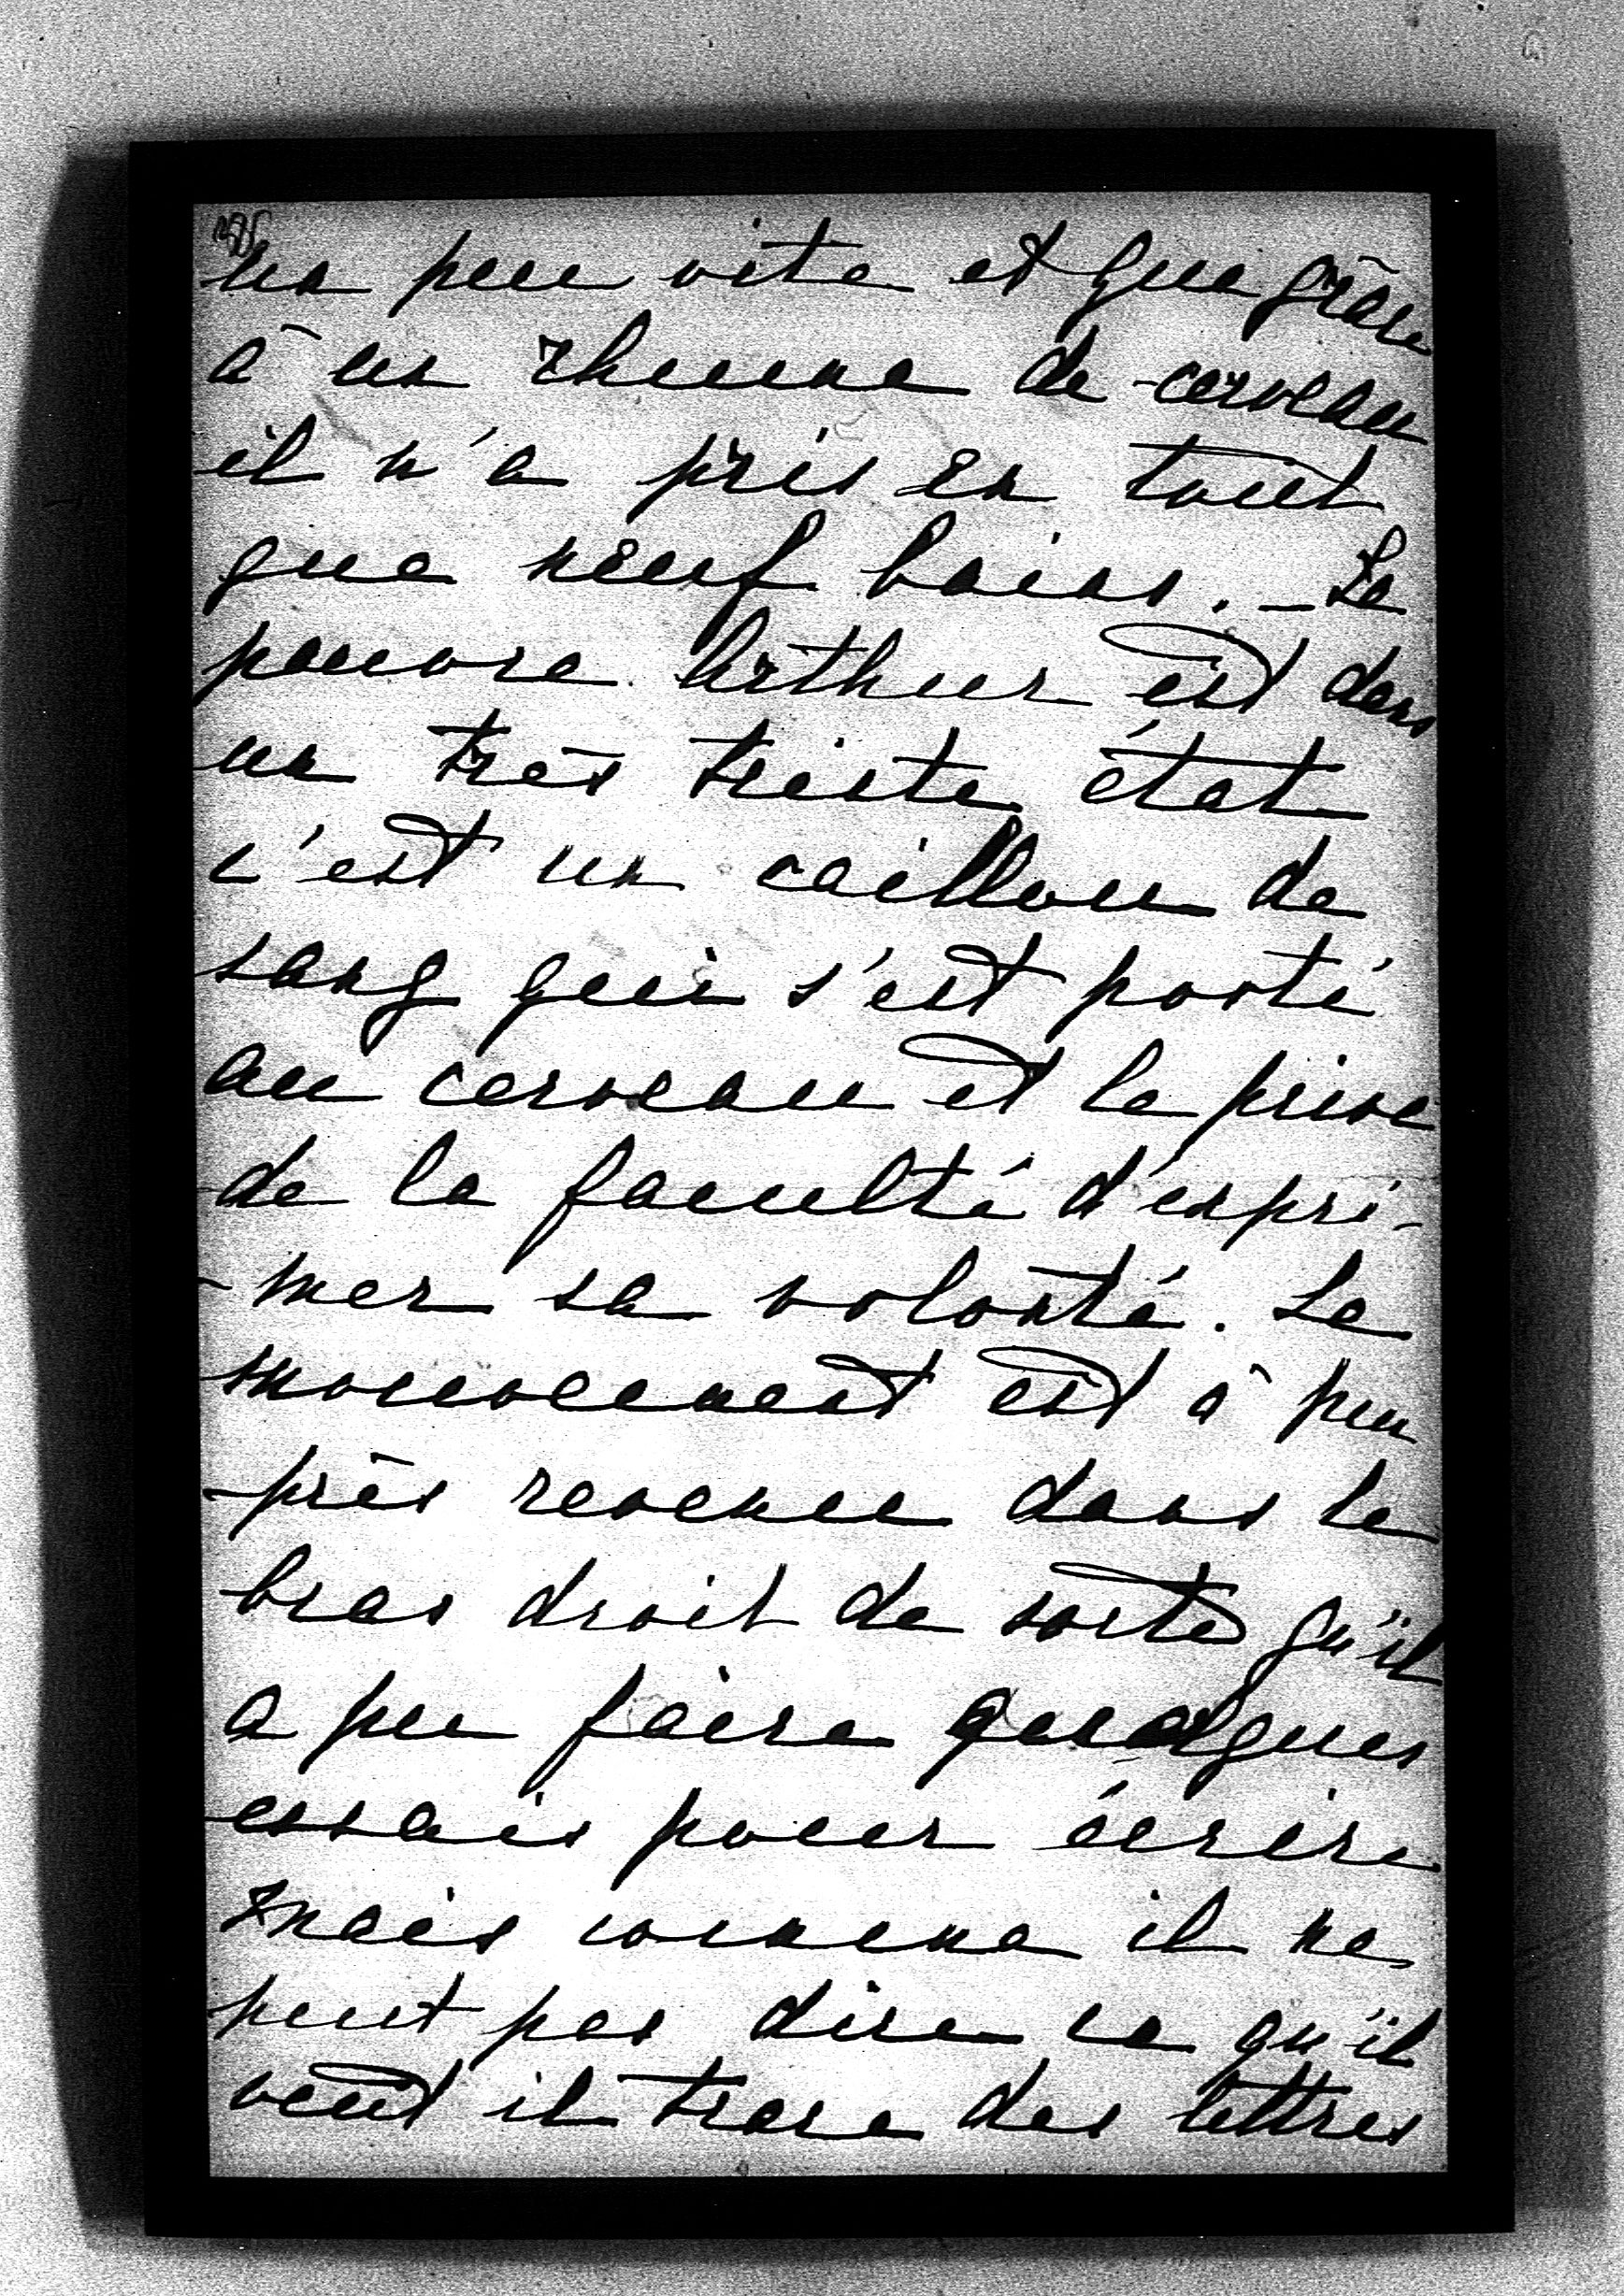 un peu vite et que grâce
à un rhume de cerveau
il n'a pris en tout
que neuf bains. – Le
pauvre Arthur est dans
un très triste état
c'est un caillou de
sang qui s'est porté
au cerveau et le prive
de la faculté d'expri-
-mer sa volonté. Le
mouvement est à peu
près revenu dans le
bras droit de sorte qu'il
a pu faire quelques
essais pour écrire
mais comme il ne
peut pas dire ce qu'il
veut il trace des lettres